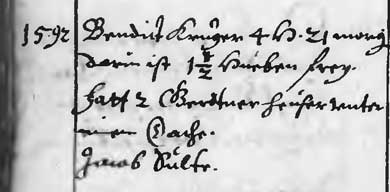 1592 Bendict Krüger 4 H. 21 morg
darin ist 1 1/2 Hueben frey.
hatt 2 Gerdtner heuser unter
einem Dache.
Jacob Nülte.